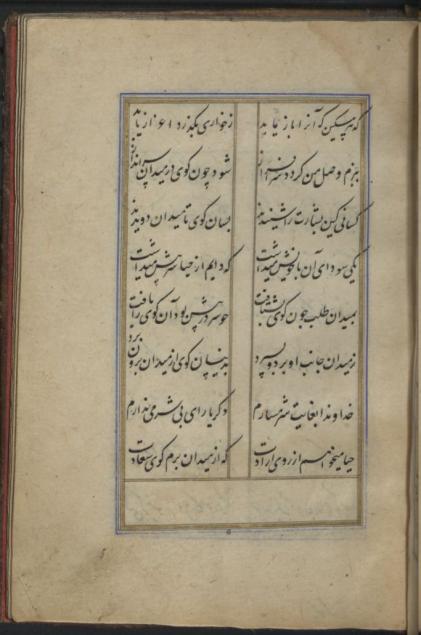 که هر مسکین که آنرا باز یابد زخواری بگذرد اعزاز یابد
بزم وصل من گردد سرافراز شود چون کوی در میدان سرانداز
کسانی کین بشارت را شنیدند بسان کوی تا میدان دویدند
یکی سودای آن با خویش میداشت که دایم از حیا سر پیش میداشت
بمیدان طلب چون کوی بشتافت چو سر در پیش بود آن کوی را یافت
زمیدان جانب او برد و بسپرد بدینسان کوی از میدان برون برد
خداوندا بغایت شرمسارم دگر یارای بی شرمی ندارم
حیا میخواهم از روی ارادت که از میدان برم کوی سعادت